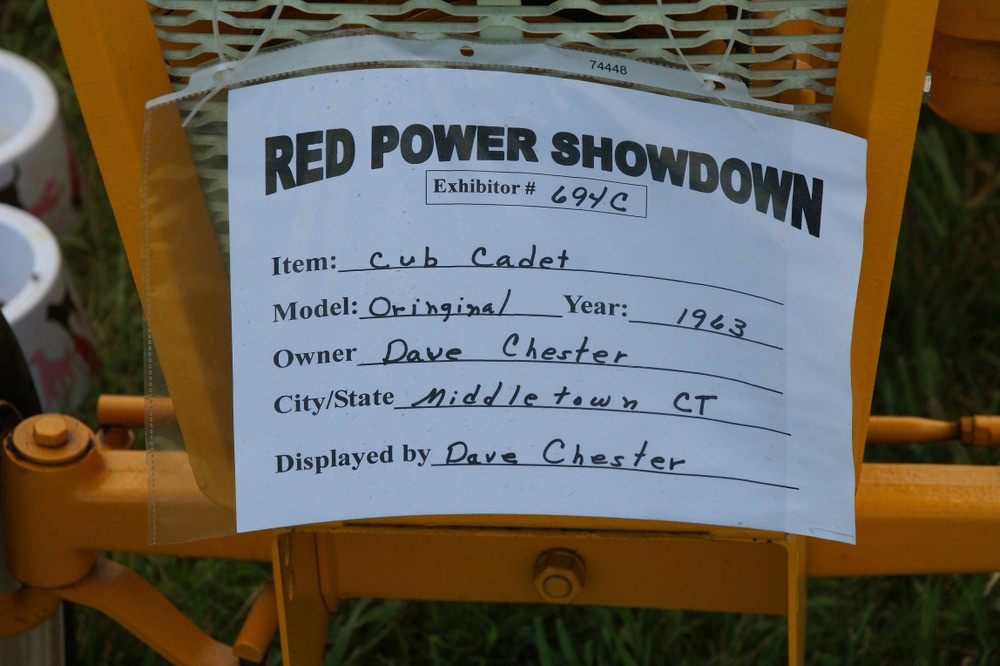 74448
RED POWER SHOWDOWN
Exhibitor # 694C
Item: Cub Cadet
Model: Oringinal Year: 1963
Owner Dave Chester
City/State Middletown CT
Displayed by Dave Chester